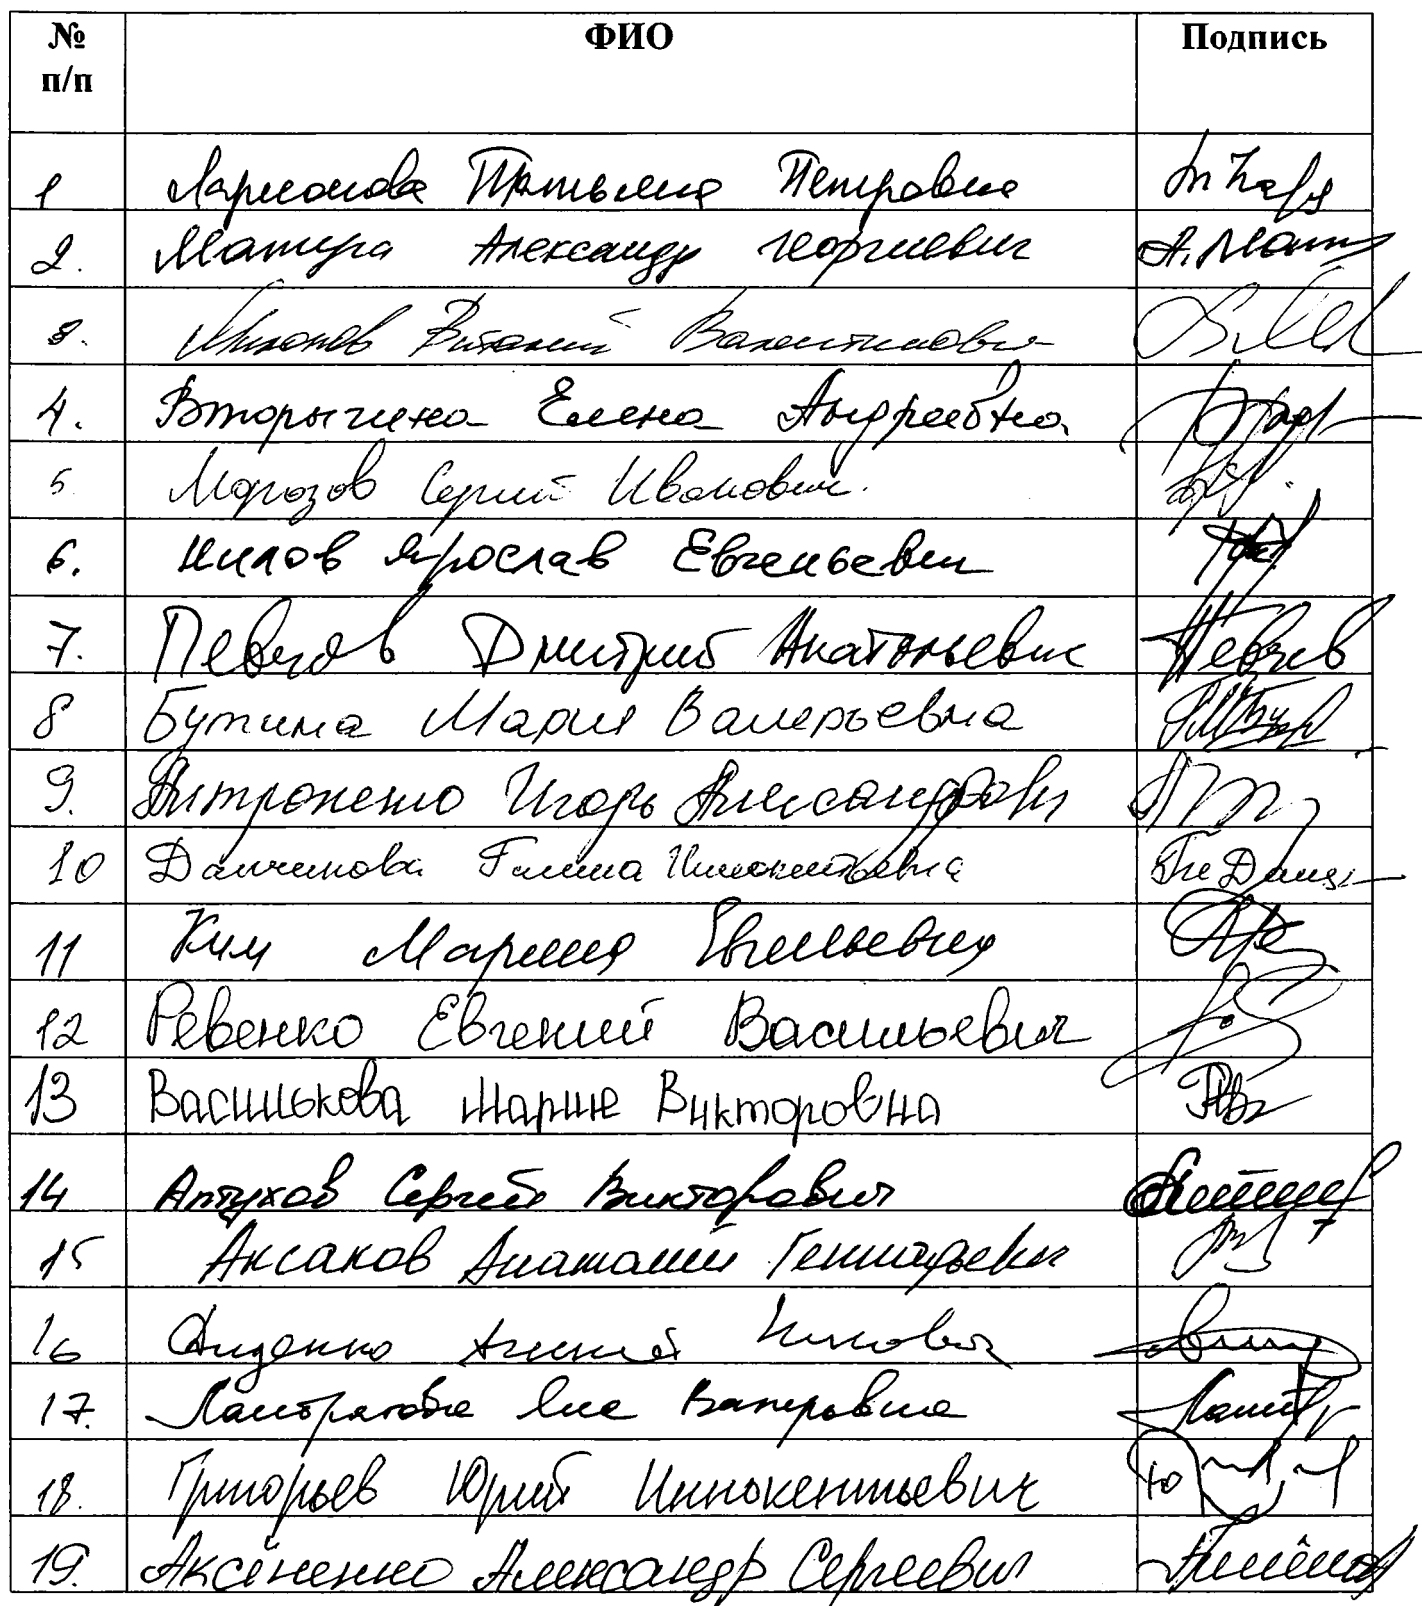 № п/п ФИО Подпись
1 Ларионова Татьяна Петровна
2. Мажуга Александр Георгиевич А. Маж
3. Милонов Виталий Валентинович
4. Вторыгина Елена Андреевна
5. Морозов Сергей Иванович.
6. Нилов Ярослав Евгеньевич
7. Певцов Дмитрий Анатольевич Певцов
8 Бутина Мария Валерьевна
9. Антропенко Игорь Александрович
10 Данчинова Галина Иннокентьевна
11 Ким Марина Евгеньевна
12 Ревенко Евгений Васильевич
13 Василькова Мария Викторовна
14 Алтухов Сергей Викторович
15 Аксаков Анатолий Геннадьевич
16 Диденко Алексей Николаевич
17. Лантратова Яна Валерьевна
18. Григорьев Юрий Иннокентьевич
19. Аксёненко Александр Сергеевич